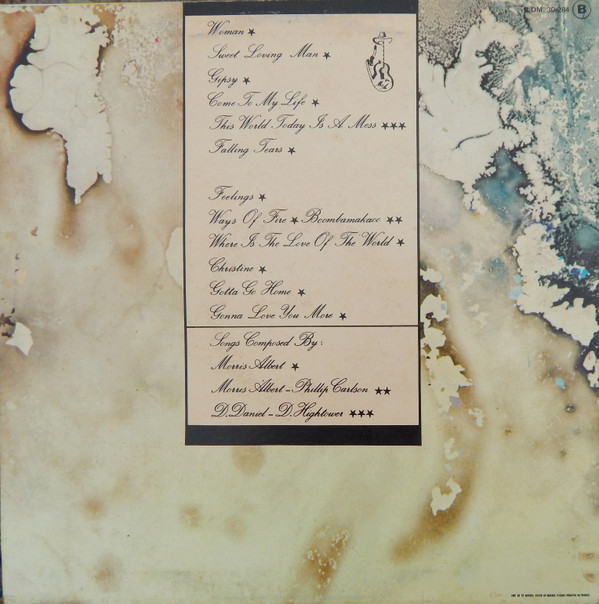 Woman ★
Sweet Loving Man ★
Gipsy ★
Come To My Life ★
This World Today Is A Mess ★★★
Falling Tears ★
Feelings ★
Ways Of Fire ★ Boombamakaoo ★★
Where Is The Love Of The World ★
Christine ★
Gotta Go Home ★
Gonna Love You More ★
Songs Composed By:
Morris Albert ★
Morris Albert - Phillip Carlson ★★
D. Daniel - D. Hightower ★★★
B